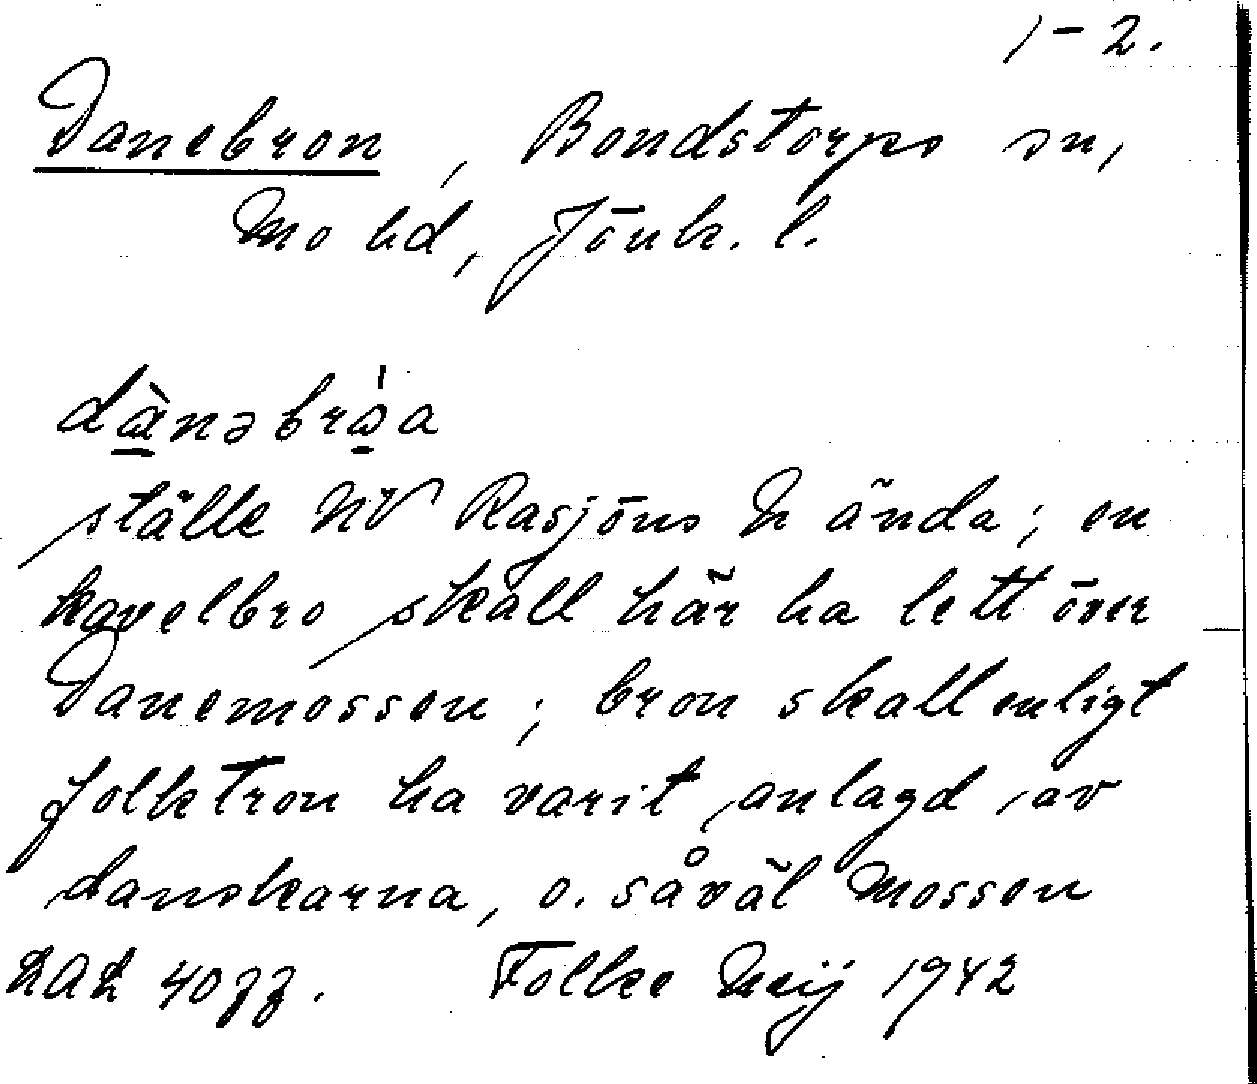 1-2.
Danebron, Bondstorps sn,
Mo hd, Jönk. l.
dànəbròa
ställe NV Rasjöns N ända; en
kavelbro skall här ha lett över
Danemossen; bron skall enligt
folktron ha varit anlagd av
danskarna, o. såväl mossen
Folke Meij 1942